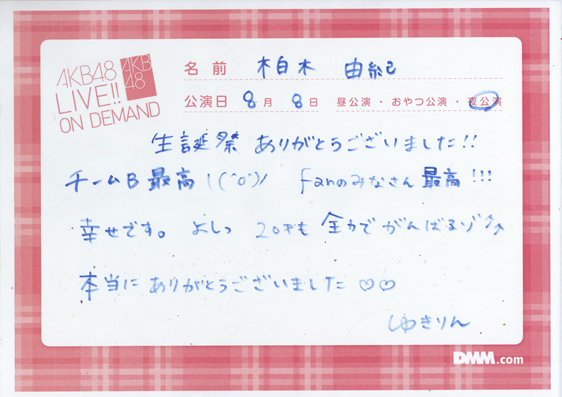 AKB48
LIVE!!
ON DEMAND
AKB
48
名前 柏木 由紀
公演日 8月 8日 昼公演・おやつ公演・夜公演
生誕祭 ありがとうございました!!
チームB 最高 \(^o^)/ fanのみなさん 最高!!!
幸せです。 よしっ 20才も 全力で がんばるゾ↗↗
本当に ありがとうございました♡♡
ゆきりん
DMM.com